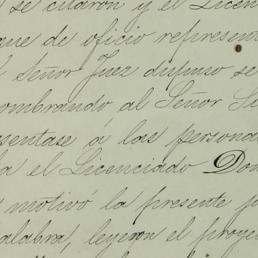 se citaron y el Licen
que de oficio represent
Señor Juez dispuso se
ombrando al Señor
sentase a las persona
a el Licenciado Don
motivó la presente p
alabra, leyeron el proye